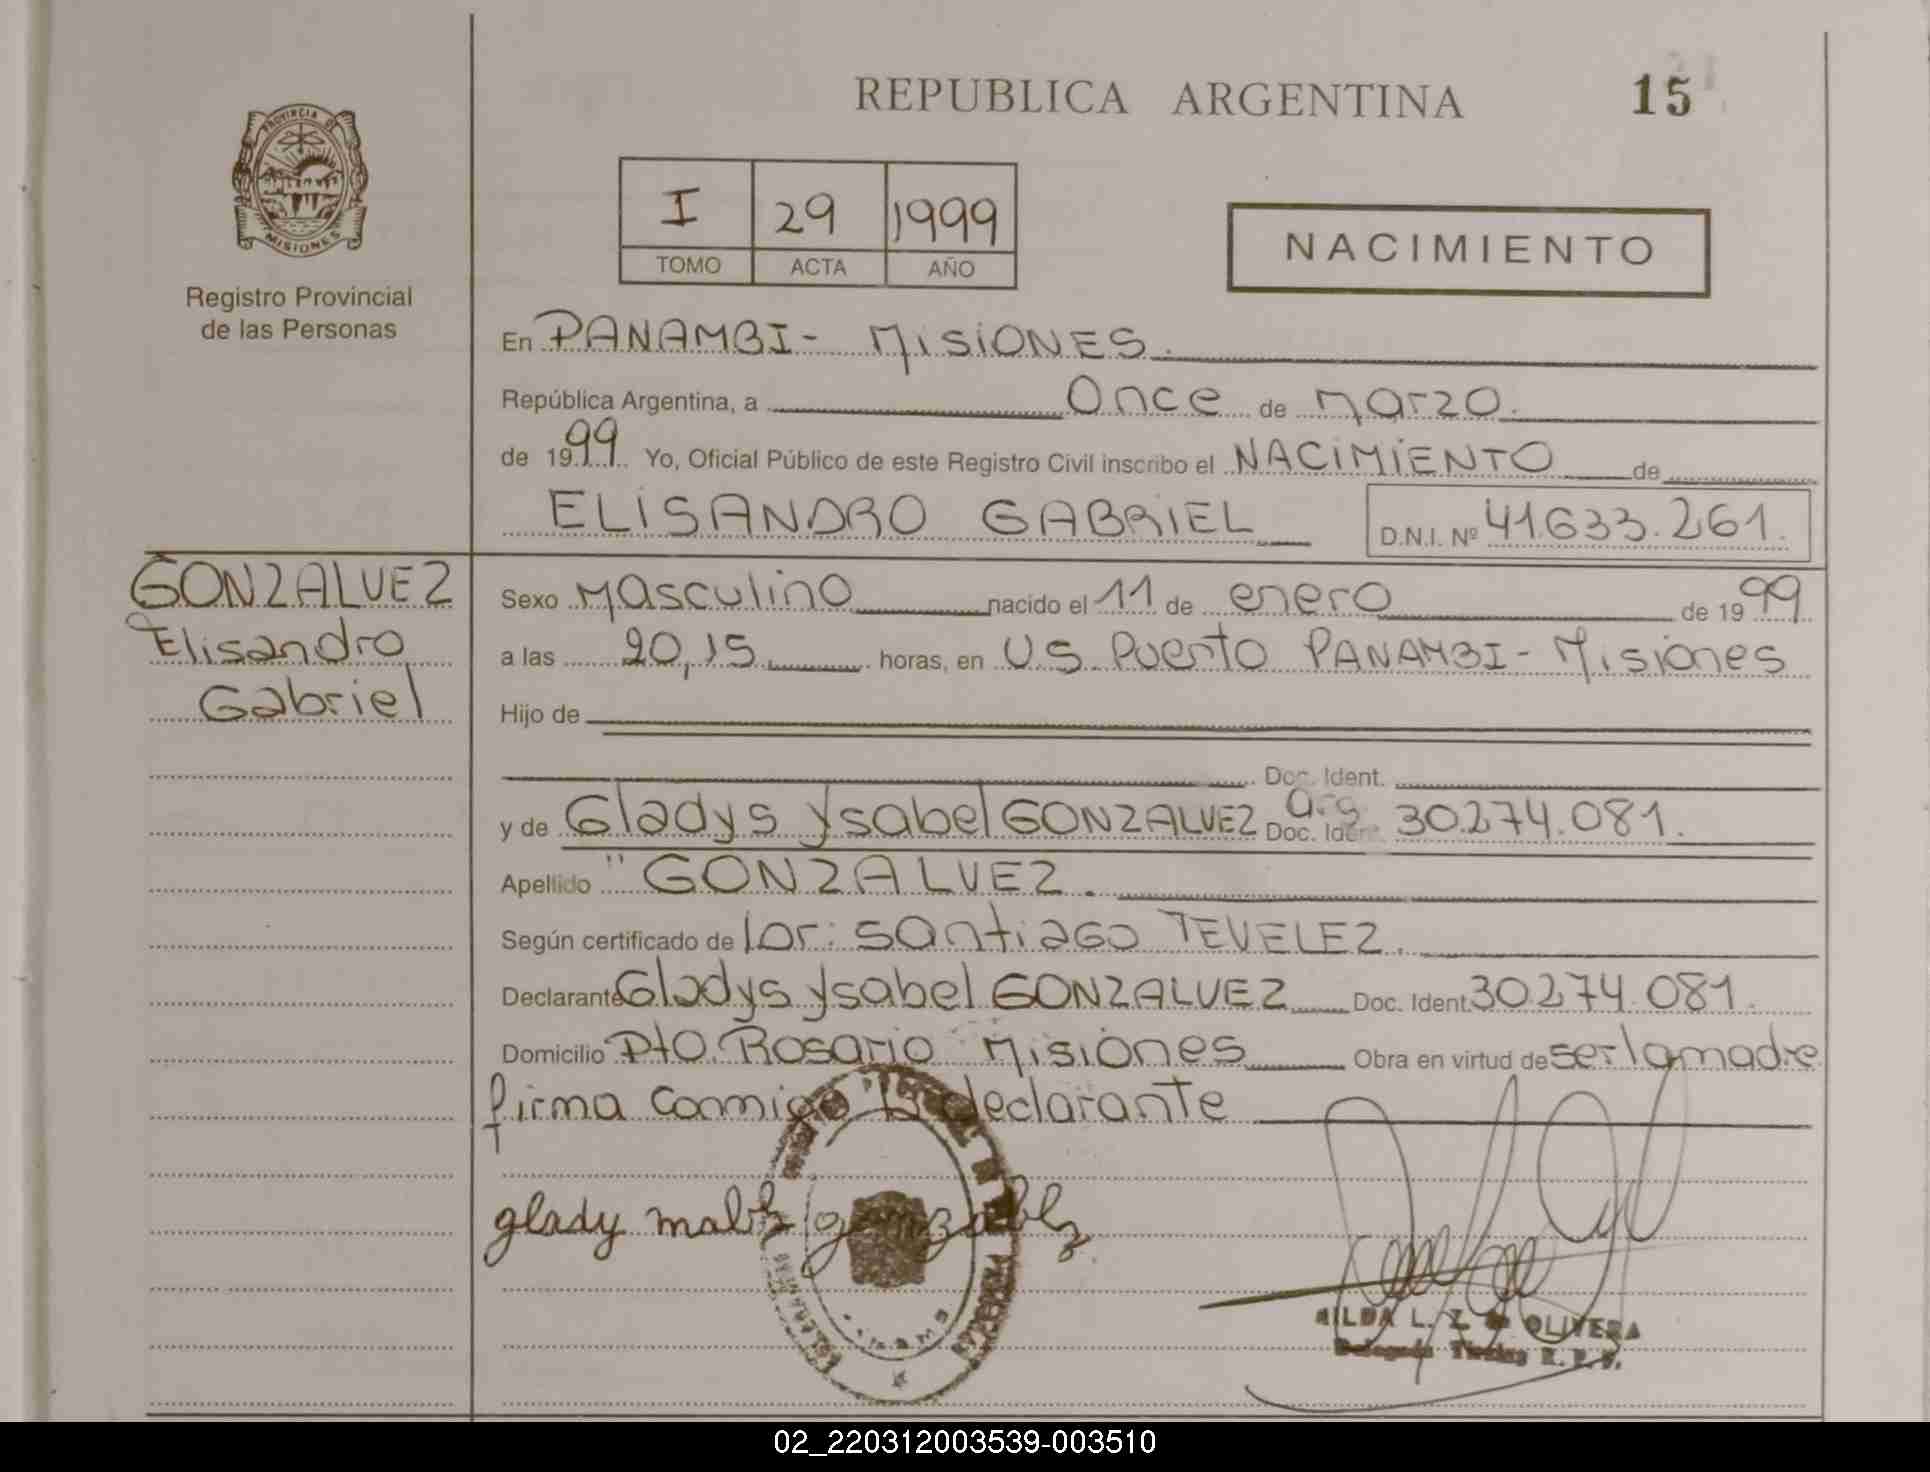 REPUBLICA ARGENTINA
15
PROVINCIA DE
MISIONES
Registro Provincial
de las Personas
I 29 1999
TOMO ACTA AÑO
NACIMIENTO
En PANAMBI - MISIONES.
República Argentina, a Once de Marzo.
de 1999. Yo, Oficial Público de este Registro Civil inscribo el NACIMIENTO de
ELISANDRO GABRIEL D.N.I. Nº 41.633.261.
GONZALVEZ
Elisandro
Gabriel
Sexo Masculino nacido el 11 de enero de 1999
a las 20,15 horas, en U.S. Puerto PANAMBI - Misiones
Hijo de
Doc. Ident.
y de Gladys Ysabel GONZALVEZ Doc. Ident. arg 30.274.081.
Apellido "GONZALVEZ.
Según certificado de Santiago TEVELEZ.
Declarante Gladys Ysabel GONZALVEZ Doc. Ident. 30.274.081.
Domicilio Pto. Rosario Misiones Obra en virtud de ser la madre
firma Conmigo la declarante
glady
L. Z. de OLIVERA
02_220312003539-003510